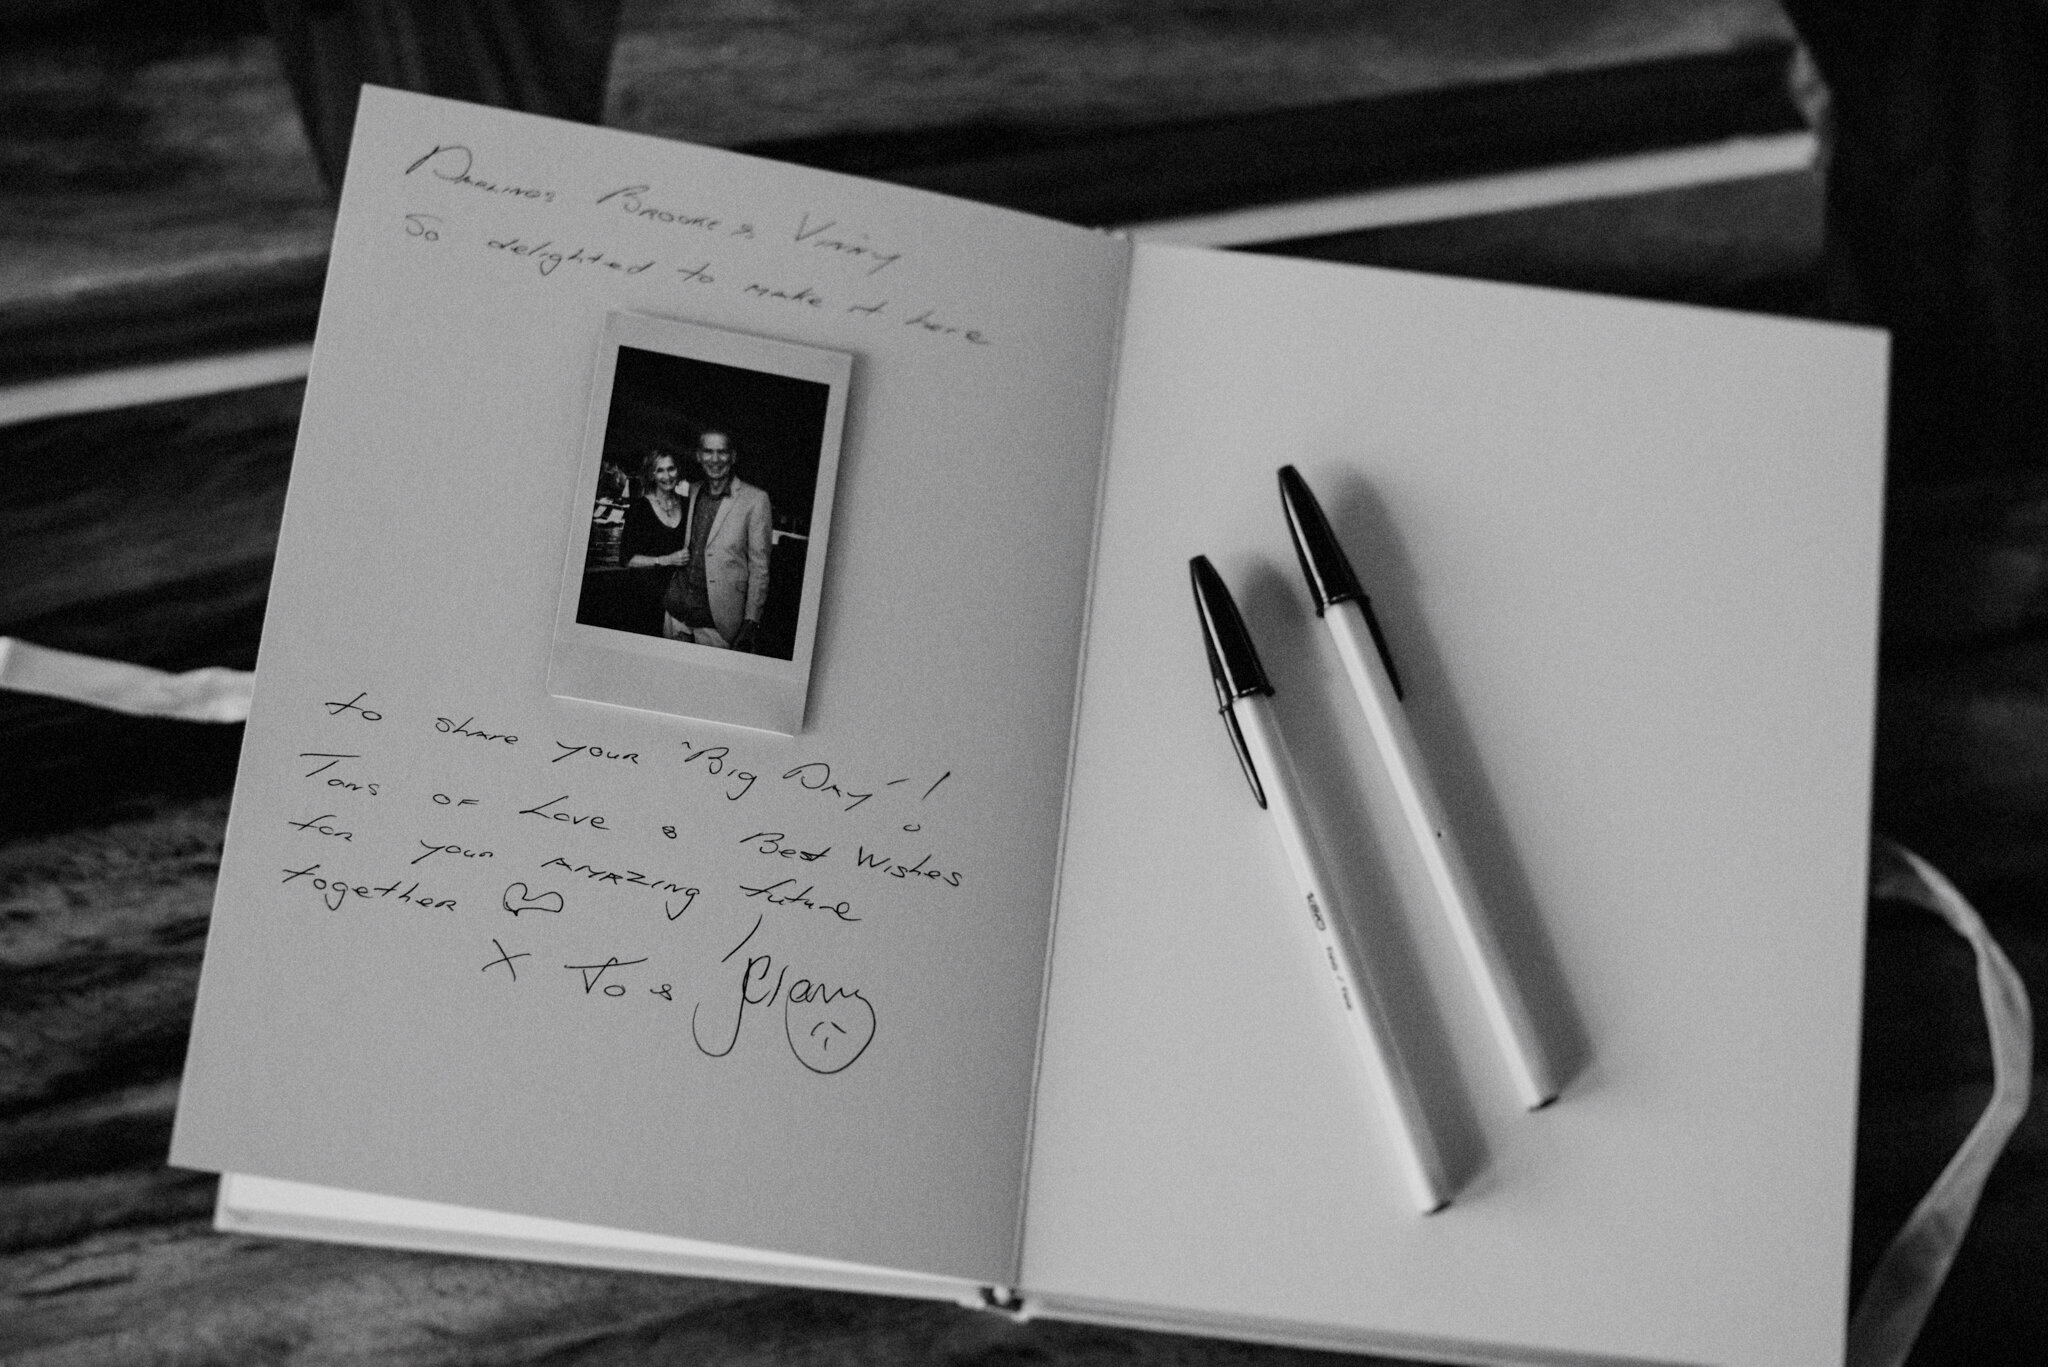 Darlings Brooke & Vinny
So delighted to make it here
to share your "Big Day"!
Tons of Love & Best Wishes
for your amazing future
together
X Jo &